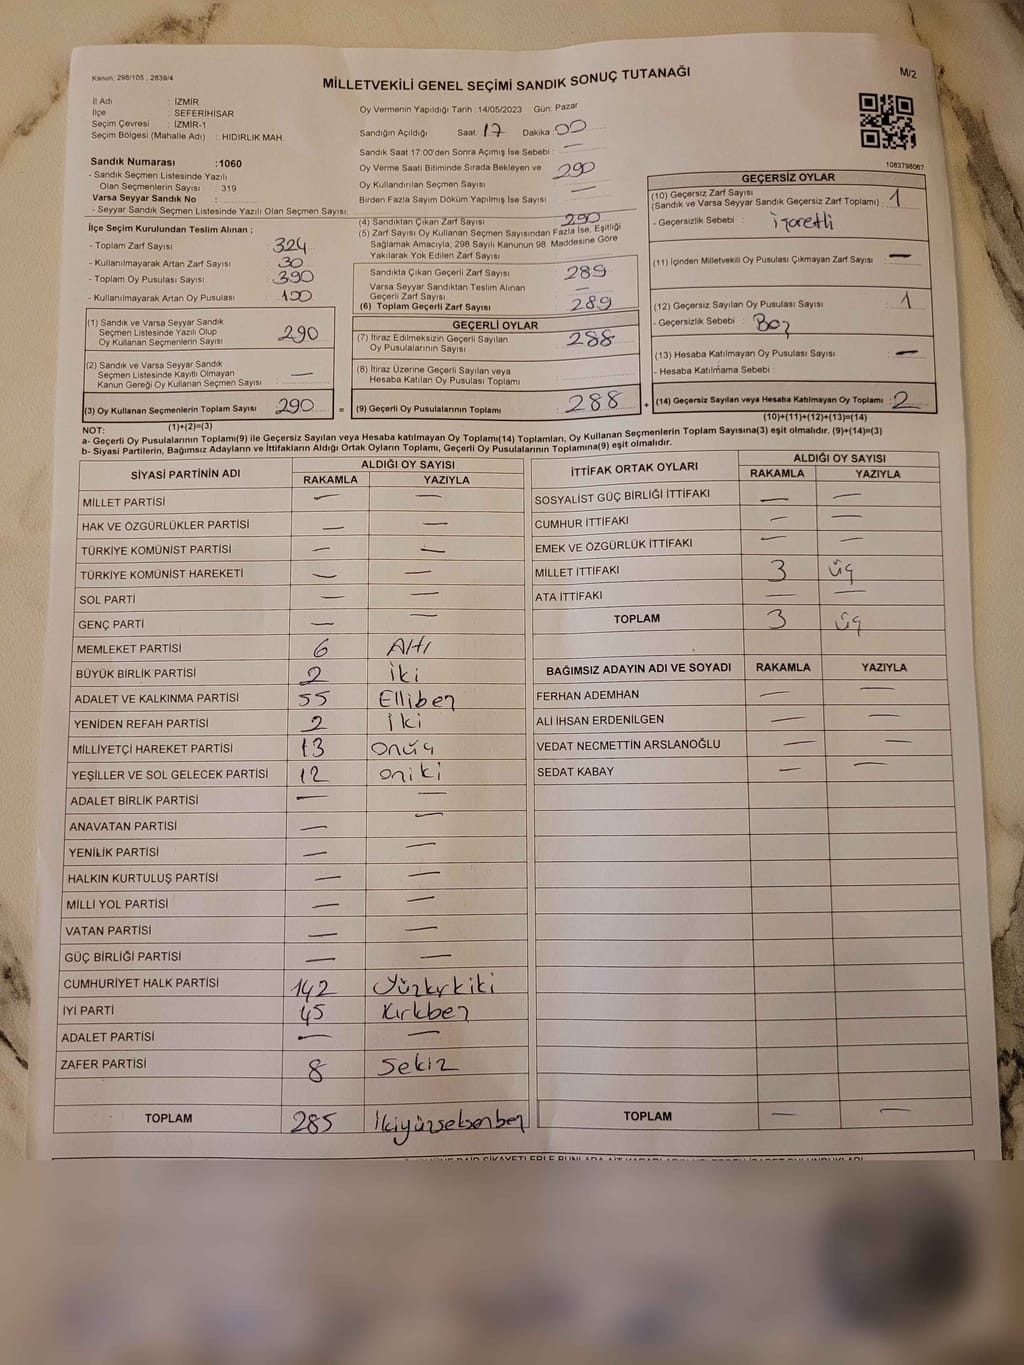 Kanun: 298/105 , 2839/4
MİLLETVEKİLİ GENEL SEÇİMİ SANDIK SONUÇ TUTANAĞI
M/2
İl Adı : İZMİR
İlçe : SEFERİHİSAR
Seçim Çevresi : İZMİR-1
Seçim Bölgesi (Mahalle Adı) : HIDIRLIK MAH.
Sandık Numarası :1060
- Sandık Seçmen Listesinde Yazılı
Olan Seçmenlerin Sayısı : 319
Varsa Seyyar Sandık No :
- Seyyar Sandık Seçmen Listesinde Yazılı Olan Seçmen Sayısı:
İlçe Seçim Kurulundan Teslim Alınan ;
- Toplam Zarf Sayısı : 324
- Kullanılmayarak Artan Zarf Sayısı : 30
- Toplam Oy Pusulası Sayısı : 390
- Kullanılmayarak Artan Oy Pusulası : 100
(1) Sandık ve Varsa Seyyar Sandık
Seçmen Listesinde Yazılı Olup
Oy Kullanan Seçmenlerin Sayısı : 290
(2) Sandık ve Varsa Seyyar Sandık
Seçmen Listesinde Kayıtlı Olmayan
Kanun Gereği Oy Kullanan Seçmen Sayısı : —
(3) Oy Kullanan Seçmenlerin Toplam Sayısı : 290
(1)+(2)=(3)
Oy Vermenin Yapıldığı Tarih :14/05/2023 Gün: Pazar
Sandığın Açıldığı Saat: 17 Dakika : 00
Sandık Saat 17.00'den Sonra Açımış İse Sebebi : —
Oy Verme Saati Bitiminde Sırada Bekleyen ve 290
Oy Kullandırılan Seçmen Sayısı
Birden Fazla Sayım Döküm Yapılmış İse Sayısı : —
(4) Sandıktan Çıkan Zarf Sayısı : 290
(5) Zarf Sayısı Oy Kullanan Seçmen Sayısından Fazla İse, Eşitliği
Sağlamak Amacıyla, 298 Sayılı Kanunun 98. Maddesine Göre
Yakılarak Yok Edilen Zarf Sayısı :
Sandıkta Çıkan Geçerli Zarf Sayısı : 289
Varsa Seyyar Sandıktan Teslim Alınan
Geçerli Zarf Sayısı : —
(6) Toplam Geçerli Zarf Sayısı : 289
GEÇERLİ OYLAR
(7) İtiraz Edilmeksizin Geçerli Sayılan
Oy Pusulalarının Sayısı : 288
(8) İtiraz Üzerine Geçerli Sayılan veya
Hesaba Katılan Oy Pusulası Toplamı :
= (9) Geçerli Oy Pusulalarının Toplamı : 288
1083798067
GEÇERSİZ OYLAR
(10) Geçersiz Zarf Sayısı
(Sandık ve Varsa Seyyar Sandık Geçersiz Zarf Toplamı) : 1
- Geçersizlik Sebebi : işaretli
(11) İçinden Milletvekili Oy Pusulası Çıkmayan Zarf Sayısı : —
(12) Geçersiz Sayılan Oy Pusulası Sayısı : 1
- Geçersizlik Sebebi : Boş
(13) Hesaba Katılmayan Oy Pusulası Sayısı : —
- Hesaba Katılmama Sebebi :
+ (14) Geçersiz Sayılan veya Hesaba Katılmayan Oy Toplamı : 2
(10)+(11)+(12)+(13)=(14)
NOT:
a- Geçerli Oy Pusulalarının Toplamı(9) ile Geçersiz Sayılan veya Hesaba katılmayan Oy Toplamı(14) Toplamları, Oy Kullanan Seçmenlerin Toplam Sayısına(3) eşit olmalıdır. (9)+(14)=(3)
b- Siyasi Partilerin, Bağımsız Adayların ve İttifakların Aldığı Ortak Oyların Toplamı, Geçerli Oy Pusulalarının Toplamına(9) eşit olmalıdır.
SİYASİ PARTİNİN ADI ALDIĞI OY SAYISI
RAKAMLA YAZIYLA
MİLLET PARTİSİ — —
HAK VE ÖZGÜRLÜKLER PARTİSİ — —
TÜRKİYE KOMÜNİST PARTİSİ — —
TÜRKİYE KOMÜNİST HAREKETİ — —
SOL PARTİ — —
GENÇ PARTİ — —
MEMLEKET PARTİSİ 6 Altı
BÜYÜK BİRLİK PARTİSİ 2 iki
ADALET VE KALKINMA PARTİSİ 55 Ellibeş
YENİDEN REFAH PARTİSİ 2 iki
MİLLİYETÇİ HAREKET PARTİSİ 13 onüç
YEŞİLLER VE SOL GELECEK PARTİSİ 12 oniki
ADALET BİRLİK PARTİSİ — —
ANAVATAN PARTİSİ — —
YENİLİK PARTİSİ — —
HALKIN KURTULUŞ PARTİSİ — —
MİLLİ YOL PARTİSİ — —
VATAN PARTİSİ — —
GÜÇ BİRLİĞİ PARTİSİ — —
CUMHURİYET HALK PARTİSİ 142 Yüzkırkiki
İYİ PARTİ 45 Kırkbeş
ADALET PARTİSİ — —
ZAFER PARTİSİ 8 Sekiz
TOPLAM 285 ikiyüzseksenbeş
İTTİFAK ORTAK OYLARI ALDIĞI OY SAYISI
RAKAMLA YAZIYLA
SOSYALİST GÜÇ BİRLİĞİ İTTİFAKI — —
CUMHUR İTTİFAKI — —
EMEK VE ÖZGÜRLÜK İTTİFAKI — —
MİLLET İTTİFAKI 3 üç
ATA İTTİFAKI — —
TOPLAM 3 üç
BAĞIMSIZ ADAYIN ADI VE SOYADI RAKAMLA YAZIYLA
FERHAN ADEMHAN — —
ALİ İHSAN ERDENİLGEN — —
VEDAT NECMETTİN ARSLANOĞLU — —
SEDAT KABAY — —
TOPLAM — —